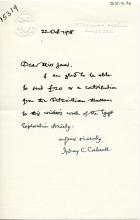 22 Oct 1918
Dear Miss Jonas
I am glad to be able
to send £20 as a contribution
from the Fitzwilliam Museum
to this winter's work of the Egypt
Exploration Society.
Yours sincerely
Sydney C. Cockerell